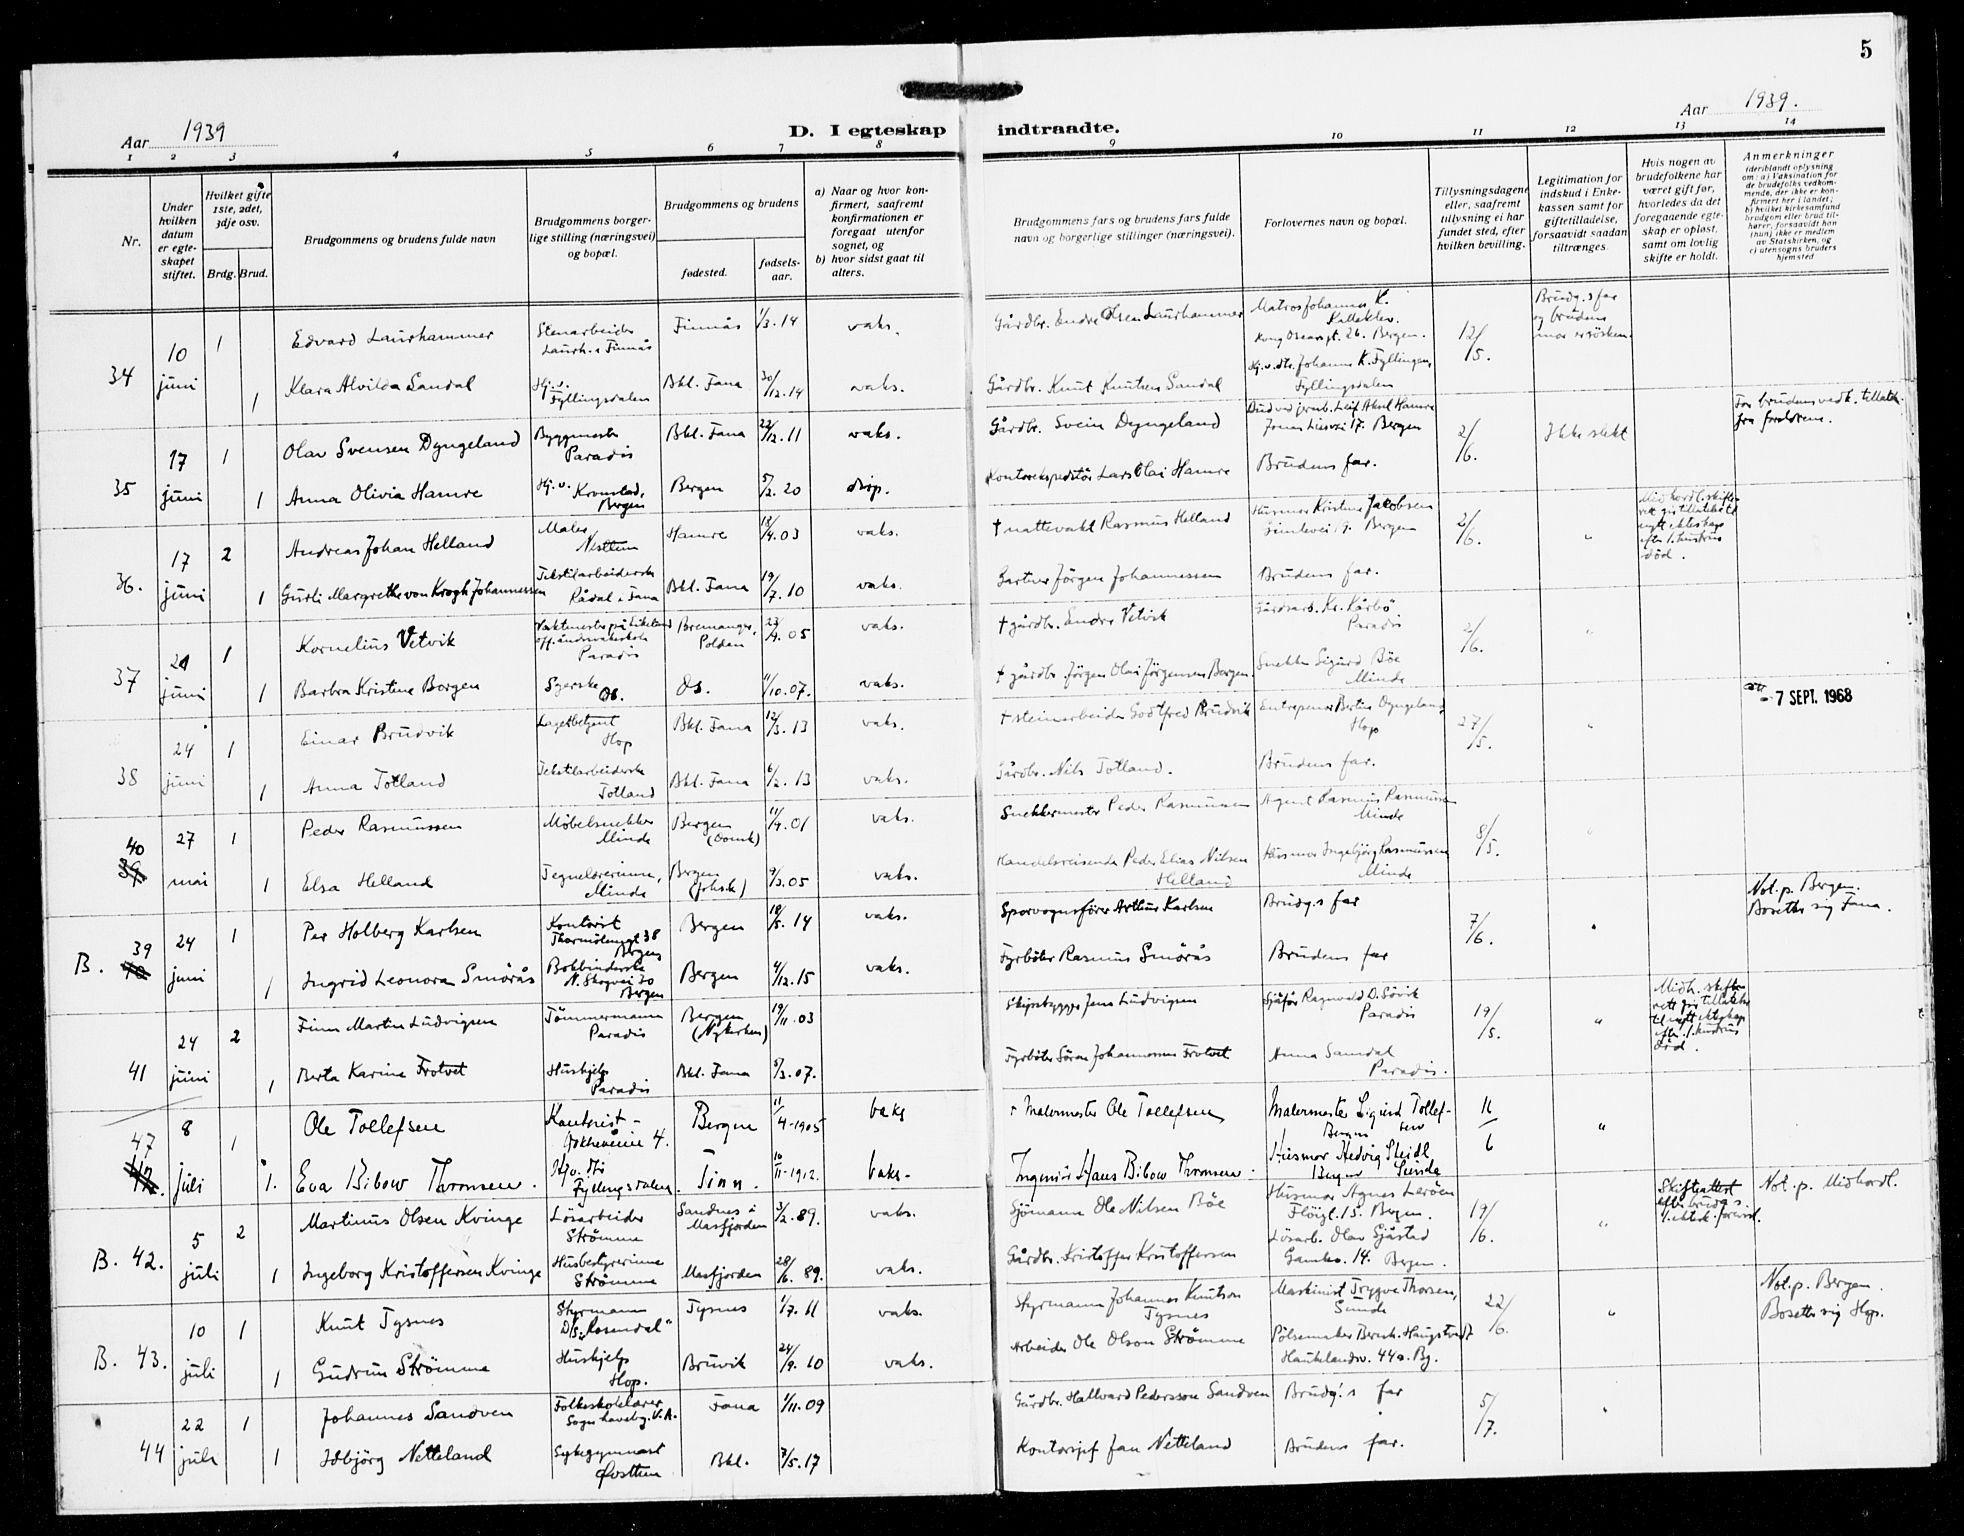 5
Aar 1939
D. I egteskap indtraadte.
Aar 1939.
1 2 3 4 5 6 7 8 9 10 11 12 13 14
Nr.
Under hvilken datum er egteskapet stiftet.
Hvilket gifte 1ste, 2det, 3dje osv.
Brdg. Brud.
Brudgommens og brudens fulde navn
Brudgommens borgerlige stilling (næringsvei) og bopæl.
Brudgommens og brudens
fødested.
fødselsaar.
a) Naar og hvor konfirmert, saafremt konfirmationen er foregaat utenfor sognet, og
b) hvor sidst gaat til alters.
Brudgommens fars og brudens fars fulde navn og borgerlige stillinger (næringsvei).
Forlovernes navn og bopæl.
Tillysningsdagene eller, saafremt tillysning ei har fundet sted, efter hvilken bevilling.
Legitimation for indskud i Enkekassen samt for giftetilladelse, forsaavidt saadan tiltrænges.
Hvis nogen av brudefolkene har været gift før, hvorledes da det foregaaende egteskap er opløst, samt om lovlig skifte er holdt.
Anmerkninger (deriblandt oplysning om: a) Vaksination for de brudefolks vedkommende, der ikke er konfirmert her i landet; b) hvilket kirkesamfund brudgom eller brud tilhører, forsaavidt han (hun) ikke er medlem av Statskirken, og c) utensogns bruders hjemsted
34 10 juni 1 Edvard Laurhammer Stenarbeider Laurh. i Finnås Finnås 1/3.14 vaks. Gårdbr. Endre Olsen Laurhammer Matros Johannes K. Kong Oscarsgt. 26. Bergen. 12/5. Brudg.s far og brudens mor er søsken.
1 Klara Alvilda Sandal Hj.v. Fyllingsdalen Bkl. Fana 30/12.14 vaks. Gårdbr. Knut Knutsen Sandal Johanne K. Fyllingen, Fyllingsdalen
35 17 juni 1 Olav Svensen Dyngeland Byggmester Paradis Bkl. Fana 22/12.11 vaks. Gårdbr. Svein Dyngeland Leif Aksel Hamre Bergen 2/6. Ikke slekt For brudens vedk. tillatelse fra foreldrene.
1 Anna Olivia Hamre Hj.v. Kronstad, Bergen Bergen 5/2.20 disp. Kontorekspeditör Lars Olai Hamre Brudens far.
36. 17 juni 2 Andreas Johan Helland Maler Nesttun Hamre 18/4.03 vaks. † nattevakt Rasmus Helland Husmor Kristine Jacobsen Bergen 2/6. "
1 Gurli Margrethe von Krogh Johannessen Tekstilarbeiderske Rådal i Fana Bkl. Fana 19/7.10 vaks. Gartner Jörgen Johannessen Brudens far.
37 21 juni 1 Kornelius Vetvik Paradis Bremanger, Polden 23/9.05 vaks. † gårdbr. Endre Vetvik Gårdsarb. Kr. Kårbö Paradis 2/6. "
1 Barbra Kristine Borgen Syerske Os. Os. 11/10.07. vaks. † gårdbr. Jörgen Olai Jörgensen Borgen. Snekker Sigurd Böe Minde
38 24 juni 1 Einar Brudvik Lagerbetjent Hop Bkl. Fana 12/3.13 vaks. † steinarbeider Godtfred Brudvik Entreprenør Bertin Dyngeland Hop 27/5. " 7 SEPT. 1968
1 Anna Totland Tekstilarbeiderske Totland Bkl. Fana 6/2.13 vaks. Gårdbr. Nils Totland. Brudens far.
40 39 27 mai 1 Peder Rasmussen Möbelsnekker Minde Bergen (Domk) 11/9.01 vaks. Snekkermester Peder Rasmussen Agent Rasmus Rasmussen Minde 8/5. "
1 Elsa Helland Tegnelærerinne, Minde Bergen (Johsk) 9/3.05 vaks. Handelsreisende Peder Elias Nilsen Helland Husmor Ingebjörg Rasmussen Minde
B. 39 40 24 juni 1 Per Holberg Karlsen Kontorist Thormölensgt 38 Bergen Bergen 18/5.14 vaks. Sporvognsförer Arthur Karlsen Brudg.s far 7/6. " Not. p. Bergen. Bosetter sig Fana.
1 Ingrid Leonora Smörås Bokbinderske N. Skogvei 30 Bergen Bergen 4/12.15 vaks. Fyrböter Rasmus Smörås Brudens far
41 24 juni 2 Finn Martin Ludvigsen Tömmermann Paradis Bergen (Nykirken) 19/11.03 Skipsbygger Jens Ludvigsen Sjåför Ragnvald D. Sövik Paradis 19/5. " Midh. skifterett gir tillatelse til nytt ekteskap efter 1. hustrus död.
1 Berta Karine Frotvet Hushjelp Paradis Bkl. Fana 8/3.07. Fyrböter Sören Johannesen Frotvet Anna Samdal Paradis.
47 42. 8 juli 1 Ole Tollefsen Kontorist Bergen 11/4-1905 vaks Malermester Ole Tollefsen Malermester Sigurd Tollefsen Bergen 11/6 "
1. Eva Bibow Thronsen. Fyllingsdalen. Tinn. 10/11-1912. vaks. Ingeniör Hans Bibow Thronsen. Husmor Hedvig Bergen
B. 42. 5 juli 2 Martinus Olsen Kvinge Lösarbeider Strömme Sandnes i Masfjorden 3/2.89. vaks. Sjömann Ole Nilsen Böe Husmor Agnes Leröen Flöigt. 15. Bergen. 19/6. " Not. p. Midhordl.
1 Ingeborg Kristoffersen Kvinge Husbestyrerinne Strömme Masfjorden 28/6.89. vaks. Gårdbr. Kristoffer Kristoffersen Lösarb. Olav Sjåstad 14. Bergen.
B. 43. 10 juli 1 Knut Tysnes Styrmann D/S „Rosendal" Tysnes 1/7.11 vaks. Styrmann Johannes Knutson Tysnes Maskinist Trygve Thorsen, Sunde 22/6. " Not. p. Bergen. Bosetter sig Hop.
1 Gudrun Strömme Hushjelp Hop. Bruvik 24/9.10 vaks. Arbeider Ole Olson Strömme Pölsemaker Bernh. Haugstvedt Haukelandsv. 44a. Bg.
44 22 juli 1 Johannes Sandven Folkeskolelærer Fana 1/11.09 Gårdbr. Hallvard Pedersson Sandven Brudg.'s far 5/7. "
1 Idbjörg Netteland Sykegymnast Övsttun Bkl. 7/5.17 Kontorsjef Jan Netteland Brudens far.